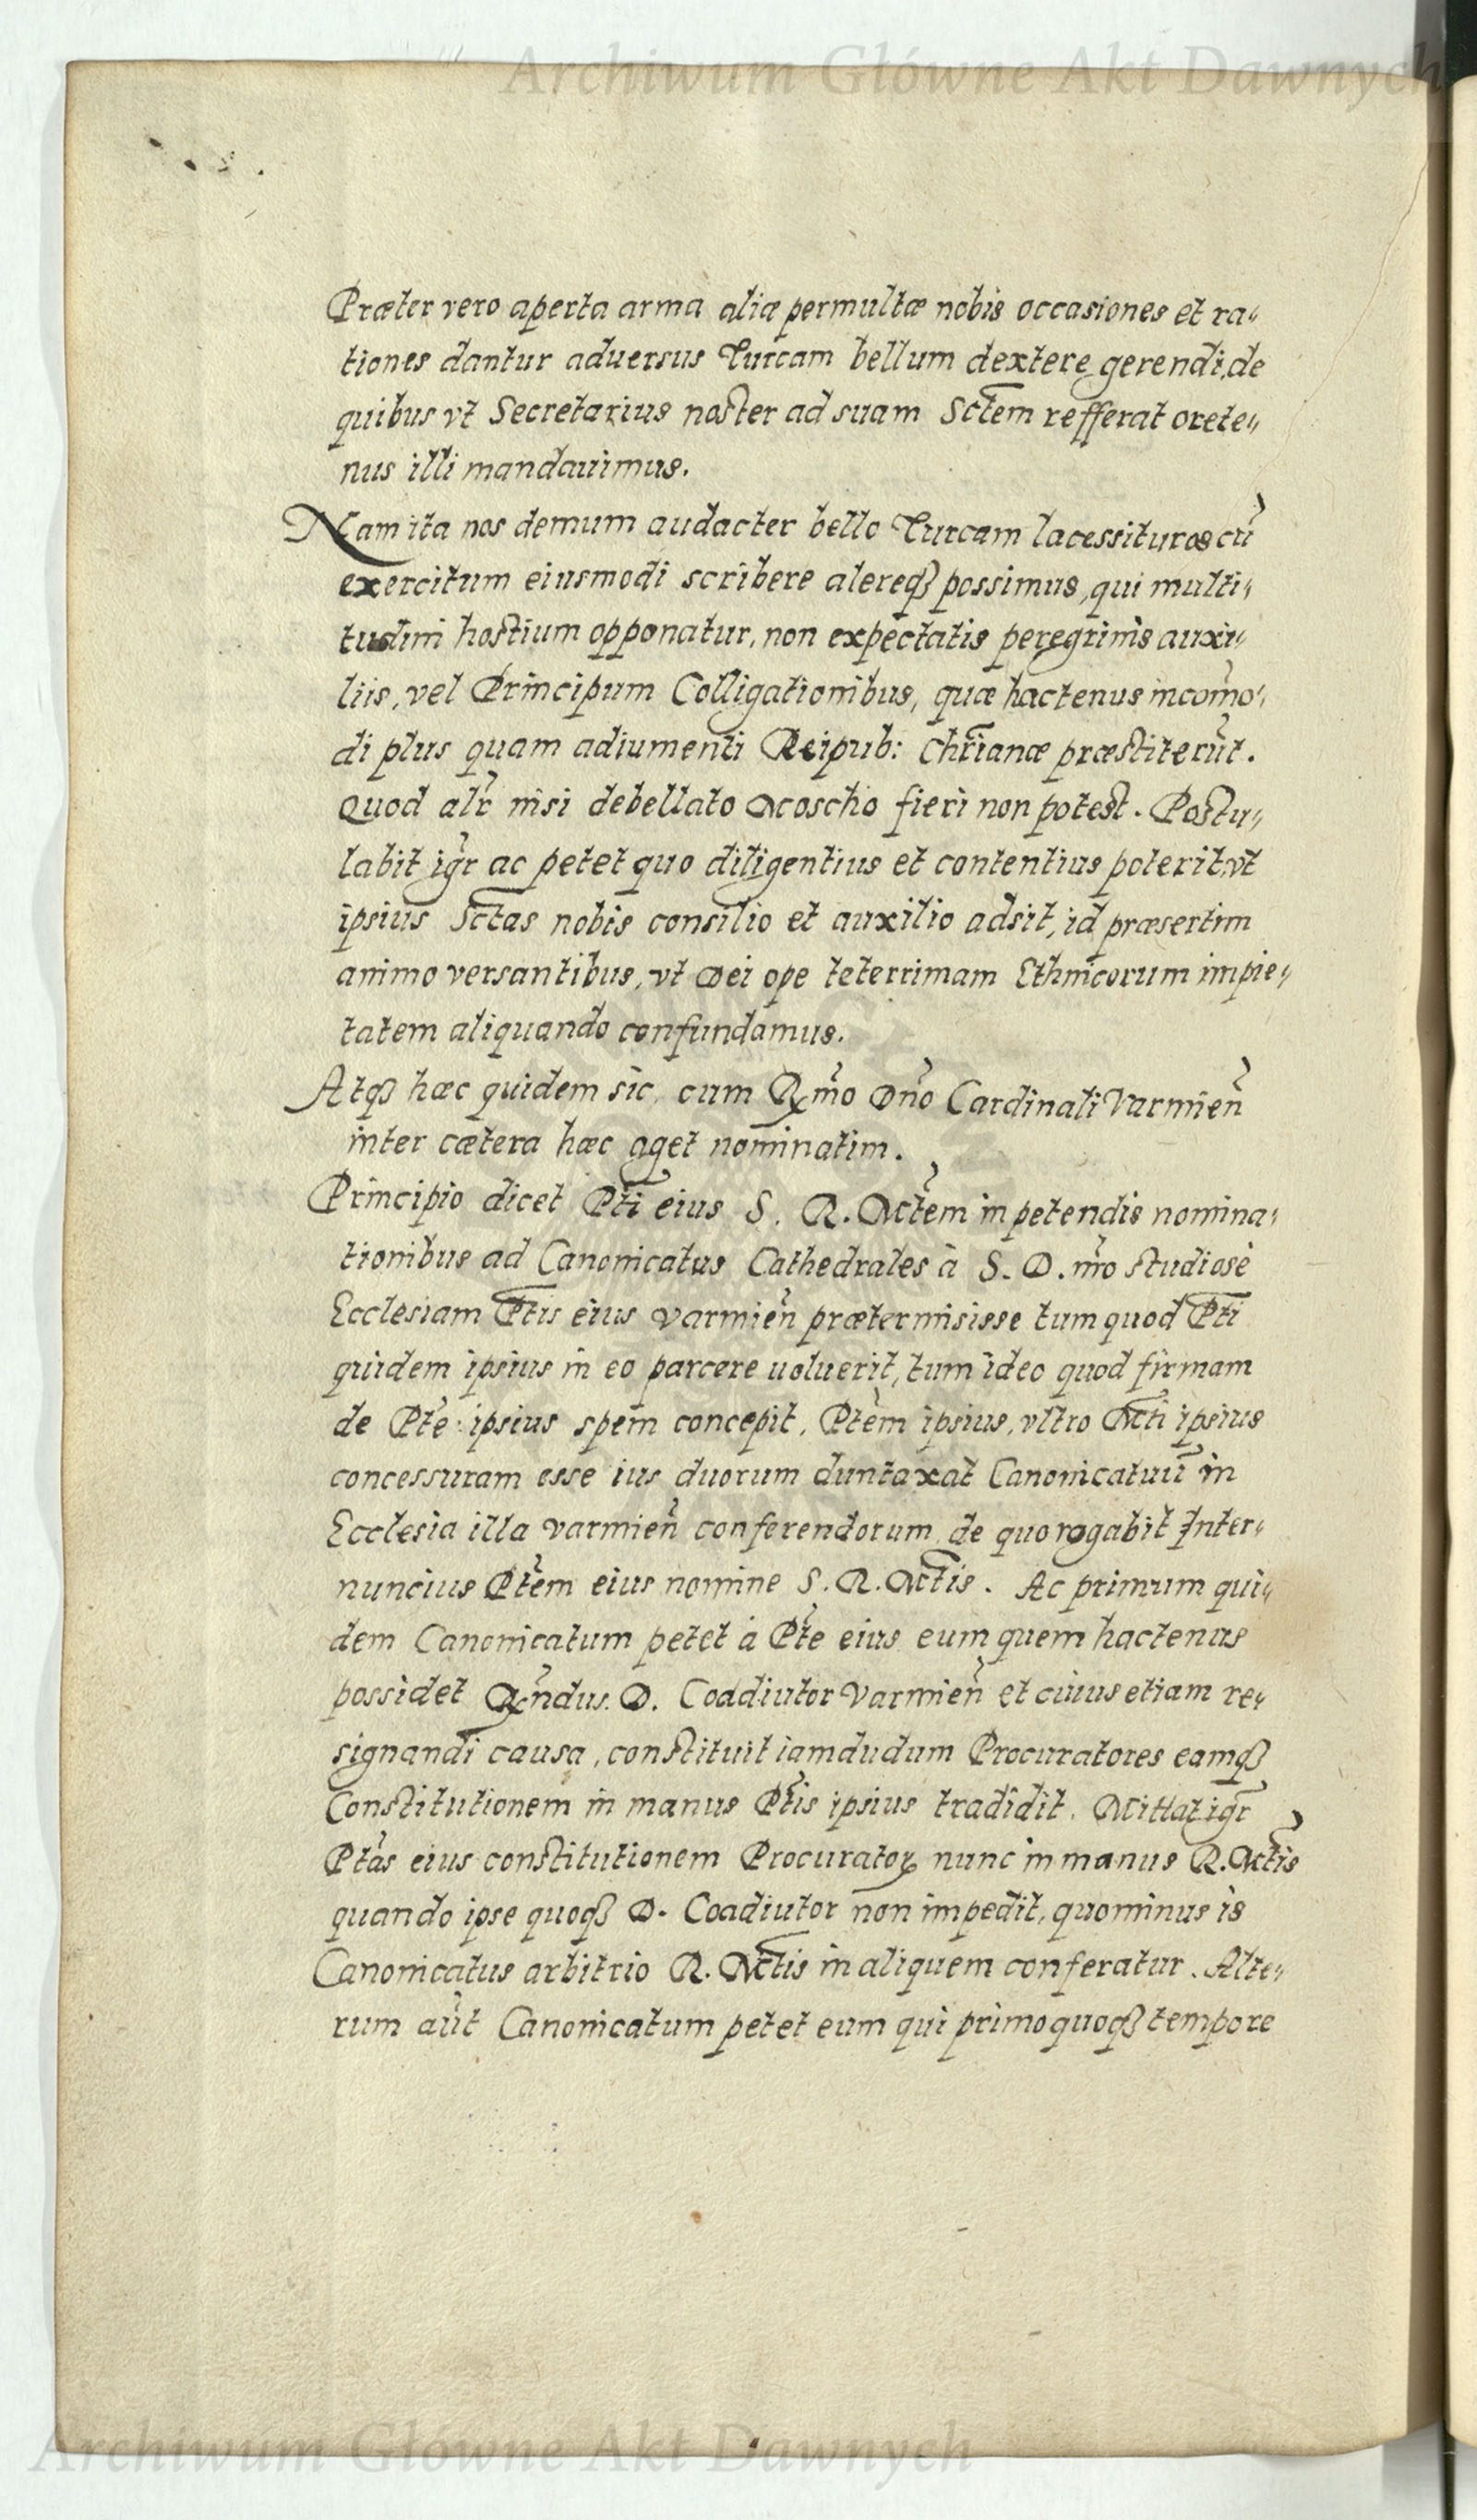 Archiwum Główne Akt Dawnych
Præter vero aperta arma aliæ permultæ nobis occasiones et ra„
tiones dantur aduersus Turcam bellum dextere gerendi, de
quibus vt Secretarius noster ad suam Sctem refferat orete„
nus illi mandauimus.
Nam ita nos demum audacter bello Turcam lacessituros cū
exercitum eiusmodi scribere alereqꝫ possimus, qui multi„
tudini hostium opponatur, non expectatis peregrinis auxi„
liis, vel Principum Colligationibus, quæ hactenus incom̃o„
di plus quam adiumenti Reipub: Chr̃ianæ præstiterũt.
Quod alr̃ nisi debellato Moscho fieri non potest. Postu„
labit igr̃ ac petet quo diligentius et contentius poterit, vt
ipsius Sctas nobis consilio et auxilio adsit, id præsertim
animo versantibus, vt Dei ope teterrimam Ethnicorum impie„
tatem aliquando confundamus.
Atqꝫ hæc quidem sic, cum Rm̃o Dño Cardinali Varmieñ
inter cætera hæc aget nominatim.
Principio dicet Pti eius S. R. Mctem in petendis nomina„
tionibus ad Canonicatus Cathedrales à S. D. nr̃o studiosè
Ecclesiam Ptis eius Varmieñ prætermisisse tum quod Pti
quidem ipsius in eo parcere uoluerit, tum ideo quod firmam
de Pte ipsius spem concepit, Ptem ipsius, vltro Mcti ipsius
concessuram esse ius duorum duntaxat Canonicatuū in
Ecclesia illa Varmieñ conferendorum, de quo rogabit Inter„
nuncius Ptem eius nomine S. R. Mctis. Ac primum qui„
dem Canonicatum petet à Pte eius eum quem hactenus
possidet Rñdus. D. Coadiutor Varmieñ et cuius etiam re„
signandi causa, constituit iamdudum Procuratores eamqꝫ
Constitutionem in manus Ptis ipsius tradidit. Mittat igr̃
Ptas eius constitutionem Procuratoꝝ nunc in manus R. Mctis
quando ipse quoqꝫ D. Coadiutor non impedit, quominus is
Canonicatus arbitrio R. Mctis in aliquem conferatur. Alte„
rum aũt Canonicatum petet eum qui primo quoqꝫ tempore
Archiwum Główne Akt Dawnych